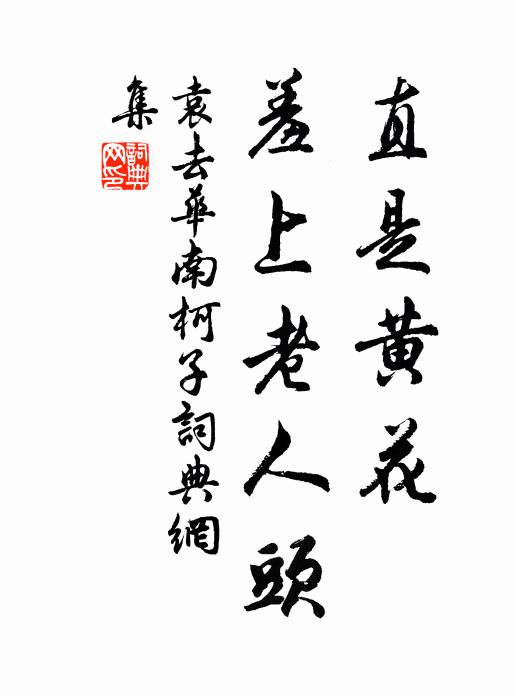 直是黄花
羞上老人頭
袁去華南柯子詞典網
集
詞典
网印